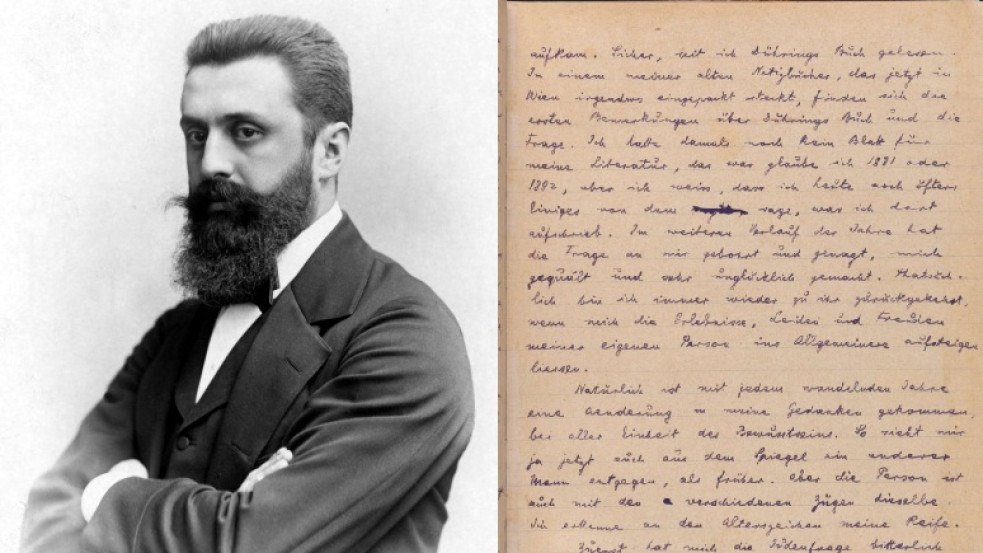 aufkam. Sicher, seit ich Dührings Buch gelesen.
In einem meiner alten Notizbücher, das jetzt in
Wien irgendwo eingepackt steckt, finden sich die
ersten Bemerkungen über Dührings Buch und die
Frage. Ich hatte damals noch kein Blatt für
meine Literatur, das war glaube ich 1881 oder
1882, aber ich weiss, dass ich heute noch öfters
Einiges von dem sage, was ich dort
aufschrieb. Im weiteren Verlauf der Jahre hat
die Frage an mir gebohrt und genagt, mich
gequält und sehr unglücklich gemacht. Thatsäch-
lich bin ich immer wieder zu ihr zurückgekehrt,
wenn mich die Erlebnisse, Leiden und Freuden
meiner eigenen Person ins Allgemeinere aufsteigen
liessen.
Natürlich ist mit jedem wandelnden Jahre
eine Aenderung in meine Gedanken gekommen,
bei aller Einheit des Bewusstseins. So sieht mir
ja jetzt auch aus dem Spiegel ein anderer
Mann entgegen, als früher. Aber die Person ist
auch mit den verschiedenen Zügen dieselbe.
Ich erkenne an den Alterszeichen meine Reife.
Zuerst hat mich die Judenfrage bitterlich